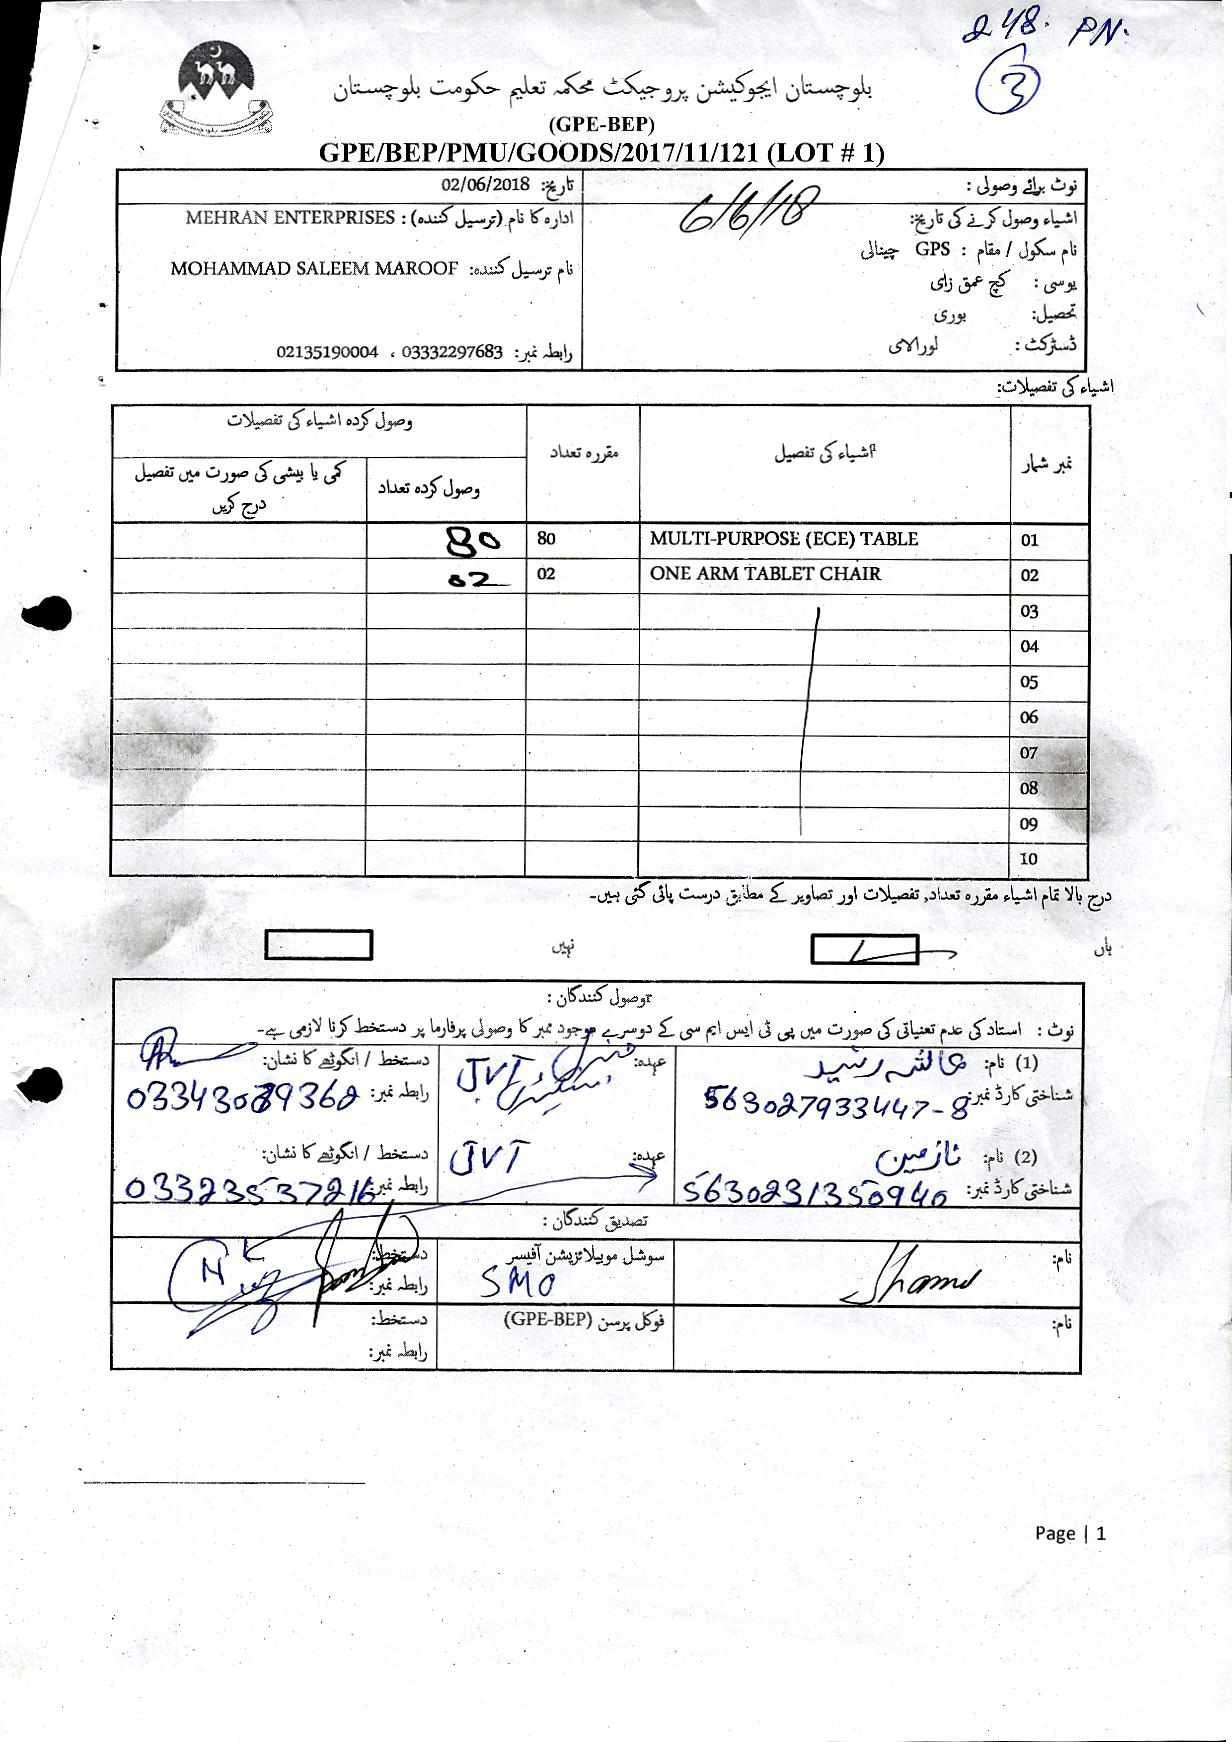 248. PN.
3
بلوچستان ایجوکیشن پروجیکٹ محکمہ تعلیم حکومت بلوچستان
(GPE-BEP)
GPE/BEP/PMU/GOODS/2017/11/121 (LOT # 1)
نوٹ برائے وصولی :
اشیاء وصول کرنے کی تاریخ: 6/6/18
نام سکول / مقام : GPS چینالی
یوسی : کچ عمق زای
تحصیل: بوری
ڈسٹرکٹ : لورالای
تاریخ: 02/06/2018
ادارہ کا نام (ترسیل کنندہ) : MEHRAN ENTERPRISES
نام ترسیل کنندہ: MOHAMMAD SALEEM MAROOF
رابطہ نمبر: 03332297683 ، 02135190004
اشیاء کی تفصیلات:
نمبر شمار اشیاء کی تفصیل مقررہ تعداد وصول کردہ اشیاء کی تفصیلات
وصول کردہ تعداد کمی یا بیشی کی صورت میں تفصیل درج کریں
01 MULTI-PURPOSE (ECE) TABLE 80 80
02 ONE ARM TABLET CHAIR 02 02
03
04
05
06
07
08
09
10
درج بالا تمام اشیاء مقررہ تعداد, تفصیلات اور تصاویر کے مطابق درست پائی گئی ہیں۔
ہاں نہیں
وصول کنندگان :
نوٹ : استاد کی عدم تعنیاتی کی صورت میں پی ٹی ایس ایم سی کے دوسرے موجود ممبر کا وصولی پرفارما پر دستخط کرنا لازمی ہے۔
(1) نام: عائشہ رشید عہدہ: JVT دستخط / انگوٹھے کا نشان:
شناختی کارڈ نمبر: 563027933447-8 رابطہ نمبر: 03343089368
(2) نام: نازمین عہدہ: JVT دستخط / انگوٹھے کا نشان:
شناختی کارڈ نمبر: 5630231350940 رابطہ نمبر: 03323537216
تصدیق کنندگان :
نام: سوشل موبیلائزیشن آفیسر دستخط:
SMO رابطہ نمبر:
نام: فوکل پرسن (GPE-BEP) دستخط:
رابطہ نمبر:
Page | 1